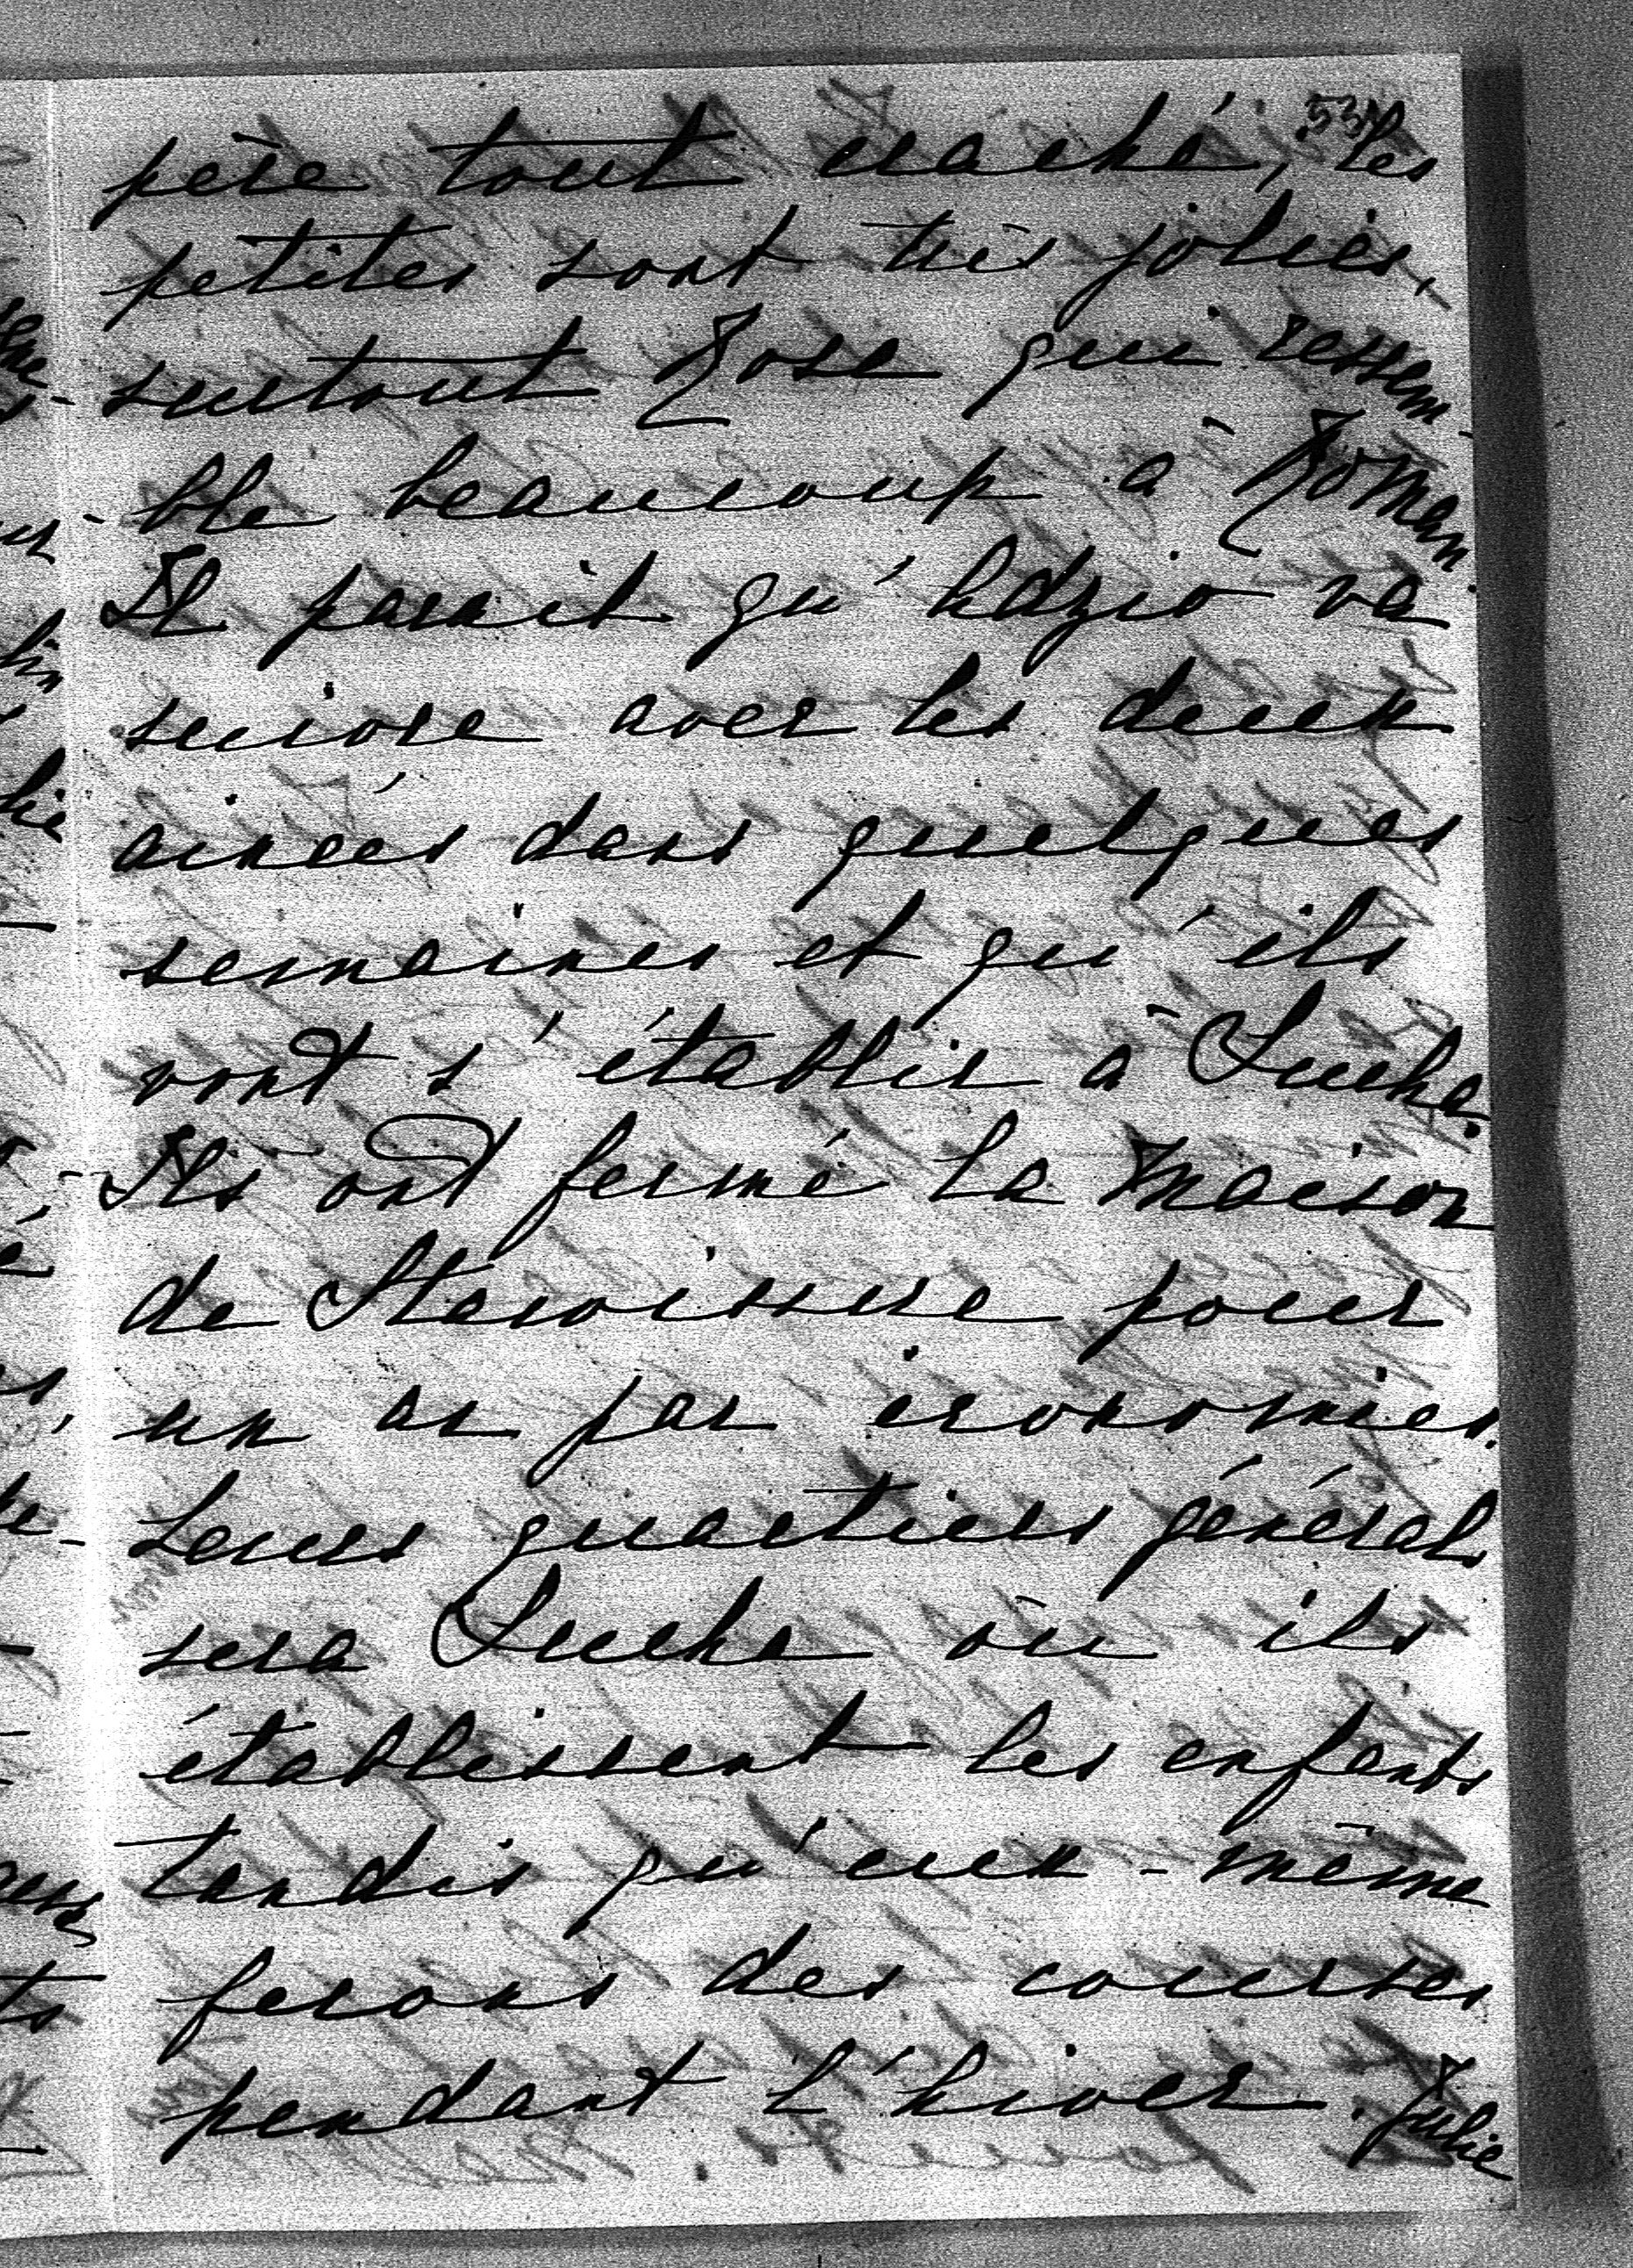 53
père tout craché, les
petites sont très jolies,
surtout Rose qui ressem-
ble beaucoup à Roman.
Il parait qu'Adzio va
suivre avec les deux
ainées dans quelques
semaines et qu'ils
vont s'établir à Sucha.
Ils ont fermé la maison
de pour
un an par économies.
Leurs quartiers générals
sera Sucha où ils
établissent les enfants
tandis qu'eux-même
ferons des courses
pendant l'hiver. Julie